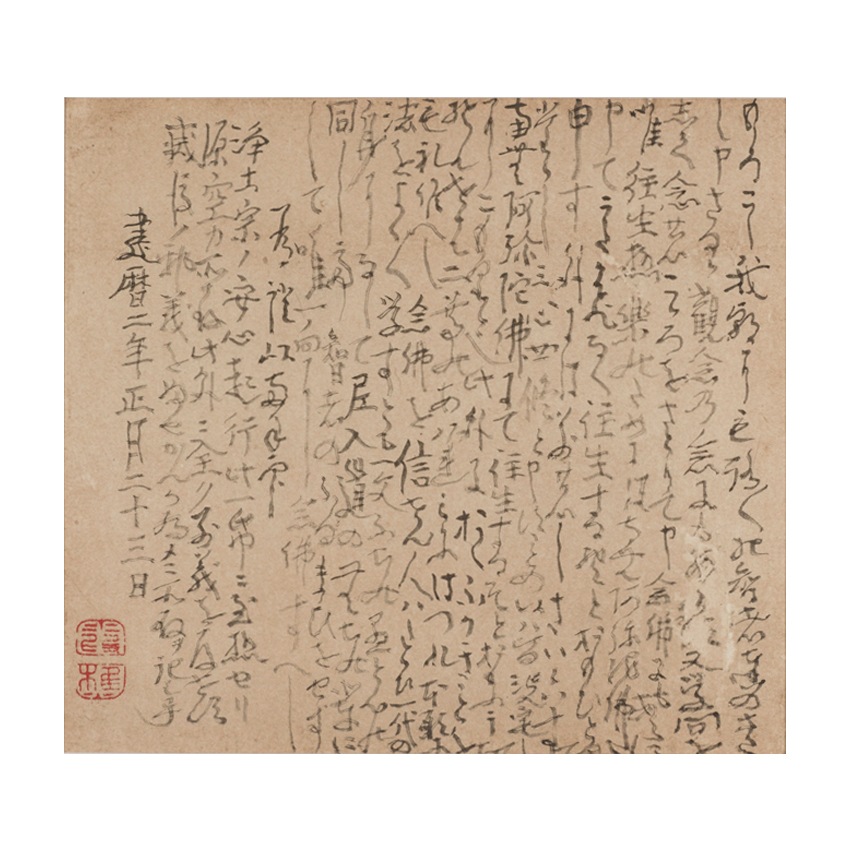 もろこし我朝にもろ〱の智者達のさた
し申さるゝ觀念乃念にもあらす又学問を
して念のこころをさとりて申念佛にもあらす
唯往生極樂のためにハ南無阿弥陀佛と
申てうたかひなく往生するそとおもひとりて
申す外にハ別のしさい候はす
但し三心四修と申ことの候ハ皆决定して
南無阿弥陀佛にて往生するそとおもふうちに
こもり候也此外におくふかきことを
そんせは二尊のあはれみにはつれ本願に
もれ候へし念佛を信せん人ハたとひ一代の
法をよく〱学すとも一文不知の愚とんの
身になして尼入道の無ちの輩に
同し 智者のふるまひをせす
して唯一向に念佛すへし
為證以両手印
浄土宗ノ安心起行此一帋ニ至極せり
源空カ所存此外ニ全ク別義を存せす
滅後ノ邪義をふせかんか為メニ所存を記し畢
建暦二年正月二十三日